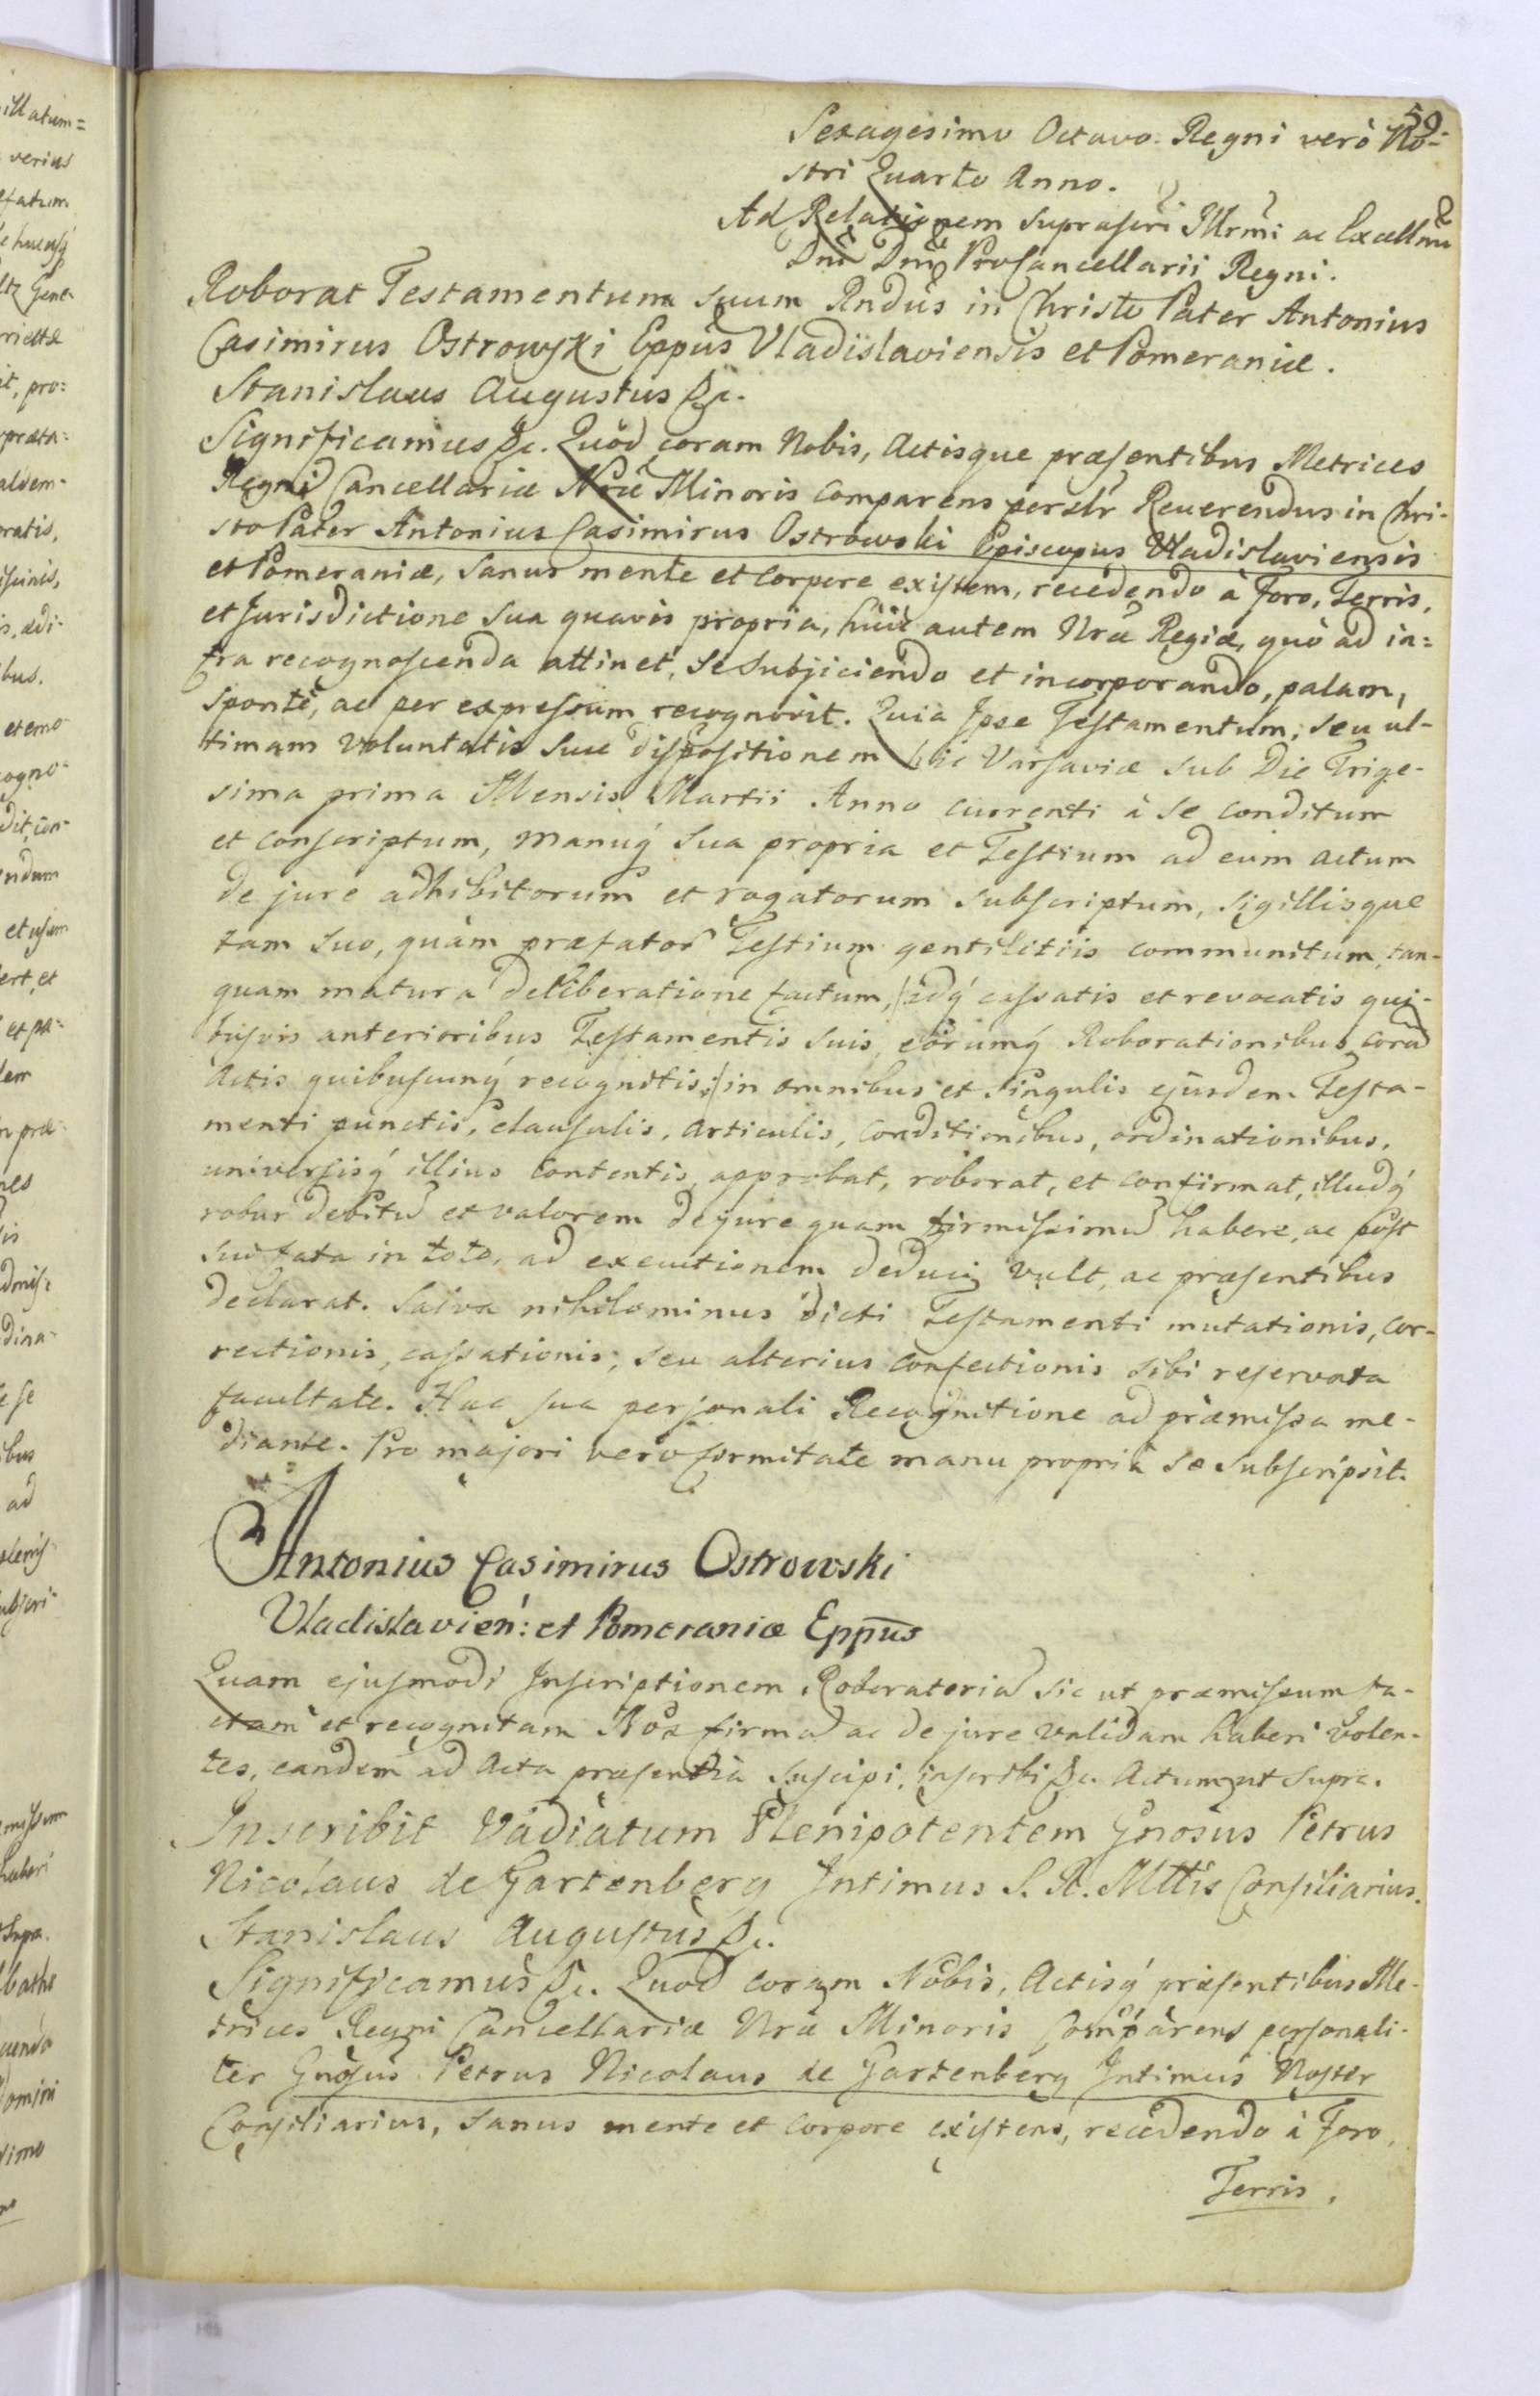 59.
Sexagesimo Octavo. Regni verò No-
stri Quarto Anno.
Ad Relationem suprascri Illrmi ac Excellmi
Dni Dni ProCancellarii Regni.
Roborat Testamentum suum Rndus in Christo Pater Antonius
Casimirus Ostrowski Eppus Vladislaviensis et Pomeraniæ.
Stanislaus Augustus &c.
Significamus &c. Quòd coram Nobis, Actisque præsentibus Metrices
Regni Cancellariæ Nræ Minoris comparens persolr Reverendus in Chri-
sto Pater Antonius Casimirus Ostrowski Episcopus Vladislaviensis
et Pomeraniæ, sanus mente et corpore existem, recedendo à Foro, Terris,
et Jurisdictione sua quavis propria, huic autem Nræ Regiæ, quò ad in=
fra recognoscenda attinet, se subjiciendo et incorporando, palam,
sponte, ac per expressum recognovit. Quia Ipse Testamentum, seu ul-
timam voluntatis suæ dispositionem hic Varsaviæ sub Die Trige-
sima prima Mensis Martii Anno currenti à se conditum
et conscriptum, manuq́ sua propria et Testium ad eum actum
de jure adhibitorum et rogatorum subscriptum, sigillisque
tam suo, quàm præfator Testium gentilitiis communitum, tan-
quam matura deliberatione factum, idq́ cassatis et revocatis qui-
busvis anterioribus Testamentis suis, eorumq́ Roborationibus corã
Actis quibuscunq́ recognitis in omnibus et singulis ejusdem Testa-
menti punctis, clausulis, articulis, conditionibus, ordinationibus,
universisq́ illius contentis, approbat, roborat, et confirmat, illudq́
robur debitũ et valorem de jure quam firmissimũ habere, ac post
sua fata in toto, ad executionem deduci vult, ac præsentibus
declarat. Salva nihilominus dicti Testamenti mutationis, cor-
rectionis, cassationis, seu alterius confectionis sibi reservata
facultate. Hac sua personali Recognitione ad præmissa me-
diante. Pro majori vero firmitate manu propria se subscripsit.
Antonius Casimirus Ostrowski
Vladislavien: et Pomeraniæ Eppus
Quam ejusmodi Inscriptionem Roboratoriã sic ut præmissum fa-
ctam et recognitam Nos firmã ac de jure validam haberi volen-
tes, eandem ad Acta præsentia suscipi, inscribi &c. Actum ut supra.
Inscribit Vadiatum Plenipotentem Gnosus Petrus
Nicolaus de Gartenberg Intimus S. R. Mttis Consiliarius.
Stanislaus Augustus &c.
Significamus &c. Quod coram Nobis, Actisq́ præsentibus Me-
trices Regni Cancellariæ Nræ Minoris Comparens personali-
ter Gnosus Petrus Nicolaus de Gartenberg Intimus Noster
Consiliarius, sanus mente et corpore existens, recedendo à Foro,
Terris,